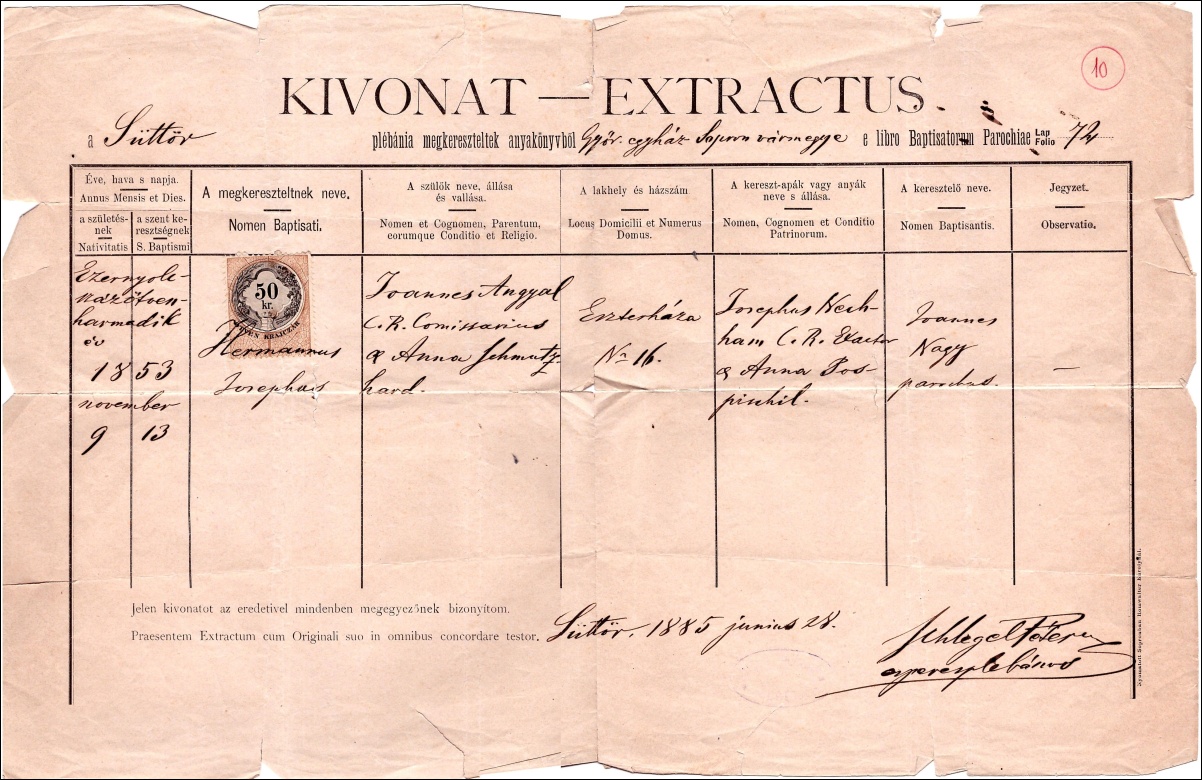 10
KIVONAT — EXTRACTUS.
a Süttör plébánia megkereszteltek anyakönyvből Győr egyház Sopron vármegye e libro Baptisatorum Parochiae Lap Folio 72
Éve, hava s napja.
Annus Mensis et Dies.
a születés-
nek
Nativitatis
a szent ke-
resztségnek
S. Baptismi
A megkereszteltnek neve.
Nomen Baptisati.
A szülők neve, állása
és vallása.
Nomen et Cognomen, Parentum,
eorumque Conditio et Religio.
A lakhely és házszám
Locus Domicilii et Numerus
Domus.
A kereszt-apák vagy anyák
neve s állása.
Nomen, Cognomen et Conditio
Patrinorum.
A keresztelő neve.
Nomen Baptisantis.
Jegyzet.
Observatio.
Ezernyolc-
százötven-
harmadik
év
1853
november
9 13
50
kr.
ÖTVEN KRAJCZÁR
Hermannus
Josephus
Joannes Angyal
C. R. Comissarius
& Anna Schmutz-
hard.
Eszterháza
No 16.
Josephus Nech-
ham C. R. Exactor
& Anna Pos-
pischil.
Joannes
Nagy
parochus.
–
Jelen kivonatot az eredetivel mindenben megegyezőnek bizonyítom.
Praesentem Extractum cum Originali suo in omnibus concordare testor.
Süttör, 1885 junius 28.
Schlegel Péter
esperesplébános
Nyomatott Sopronban Romwalter Károlynál.